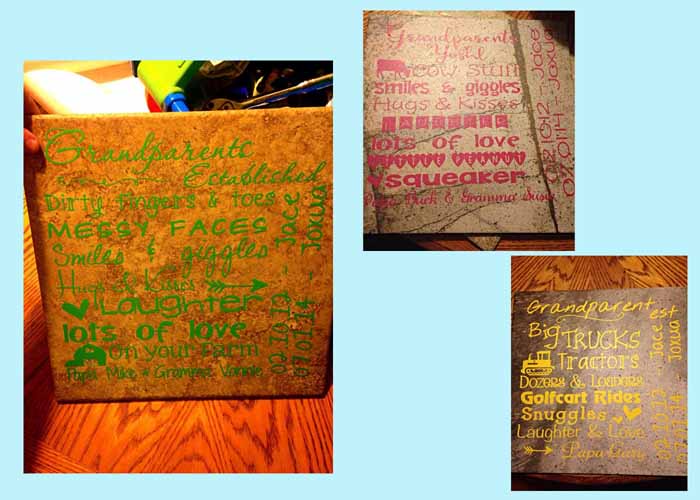 Grandparents
Established
Dirty fingers & toes
MESSY FACES
Smiles & giggles
Hugs & Kisses
Laughter
lots of love
On your Farm
Papa Mike & Gramma Vonnie
02.10.12 - Jace
07.01.14 - Joxua
Grandparents
COW Stuff
smiles & giggles
Hugs & Kisses
lots of love
squeaker
Papa Chuck & Gramma Susie
02.10.12 - Jace
07.01.14 - Joxua
Grandparent est
Big TRUCKS
Tractors
Dozers & Loaders
Golfcart Rides
Snuggles
Laughter & Love
Papa Gary
02.10.12 Jace
07.01.14 Joxua